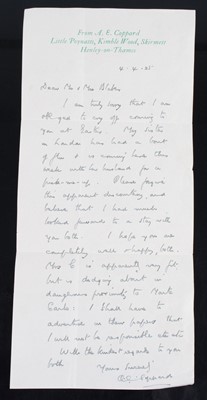 From A. E. Coppard
Little Poynatts, Kimble Wind, Skirmett
Henley-on-Thames
4. 4. 35
Dear Mr & Mrs
I am truly sorry that I am
obliged to cry off coming to
you at Easter. My sister
in London has had a bout
of flu & is coming here this
week with her husband for a
Please forgive
this apparent discourtesy, and
believe that I had much
looked forward to a stay with
you both. I hope you are
completely well & happy, both.
Mrs C is apparently very fit
but is dodging about in
dangerous proximity to
I shall have to
advertise in the papers that
I will not be responsible
With the kindest regards to you
both
Yours sincerely
A.E. Coppard